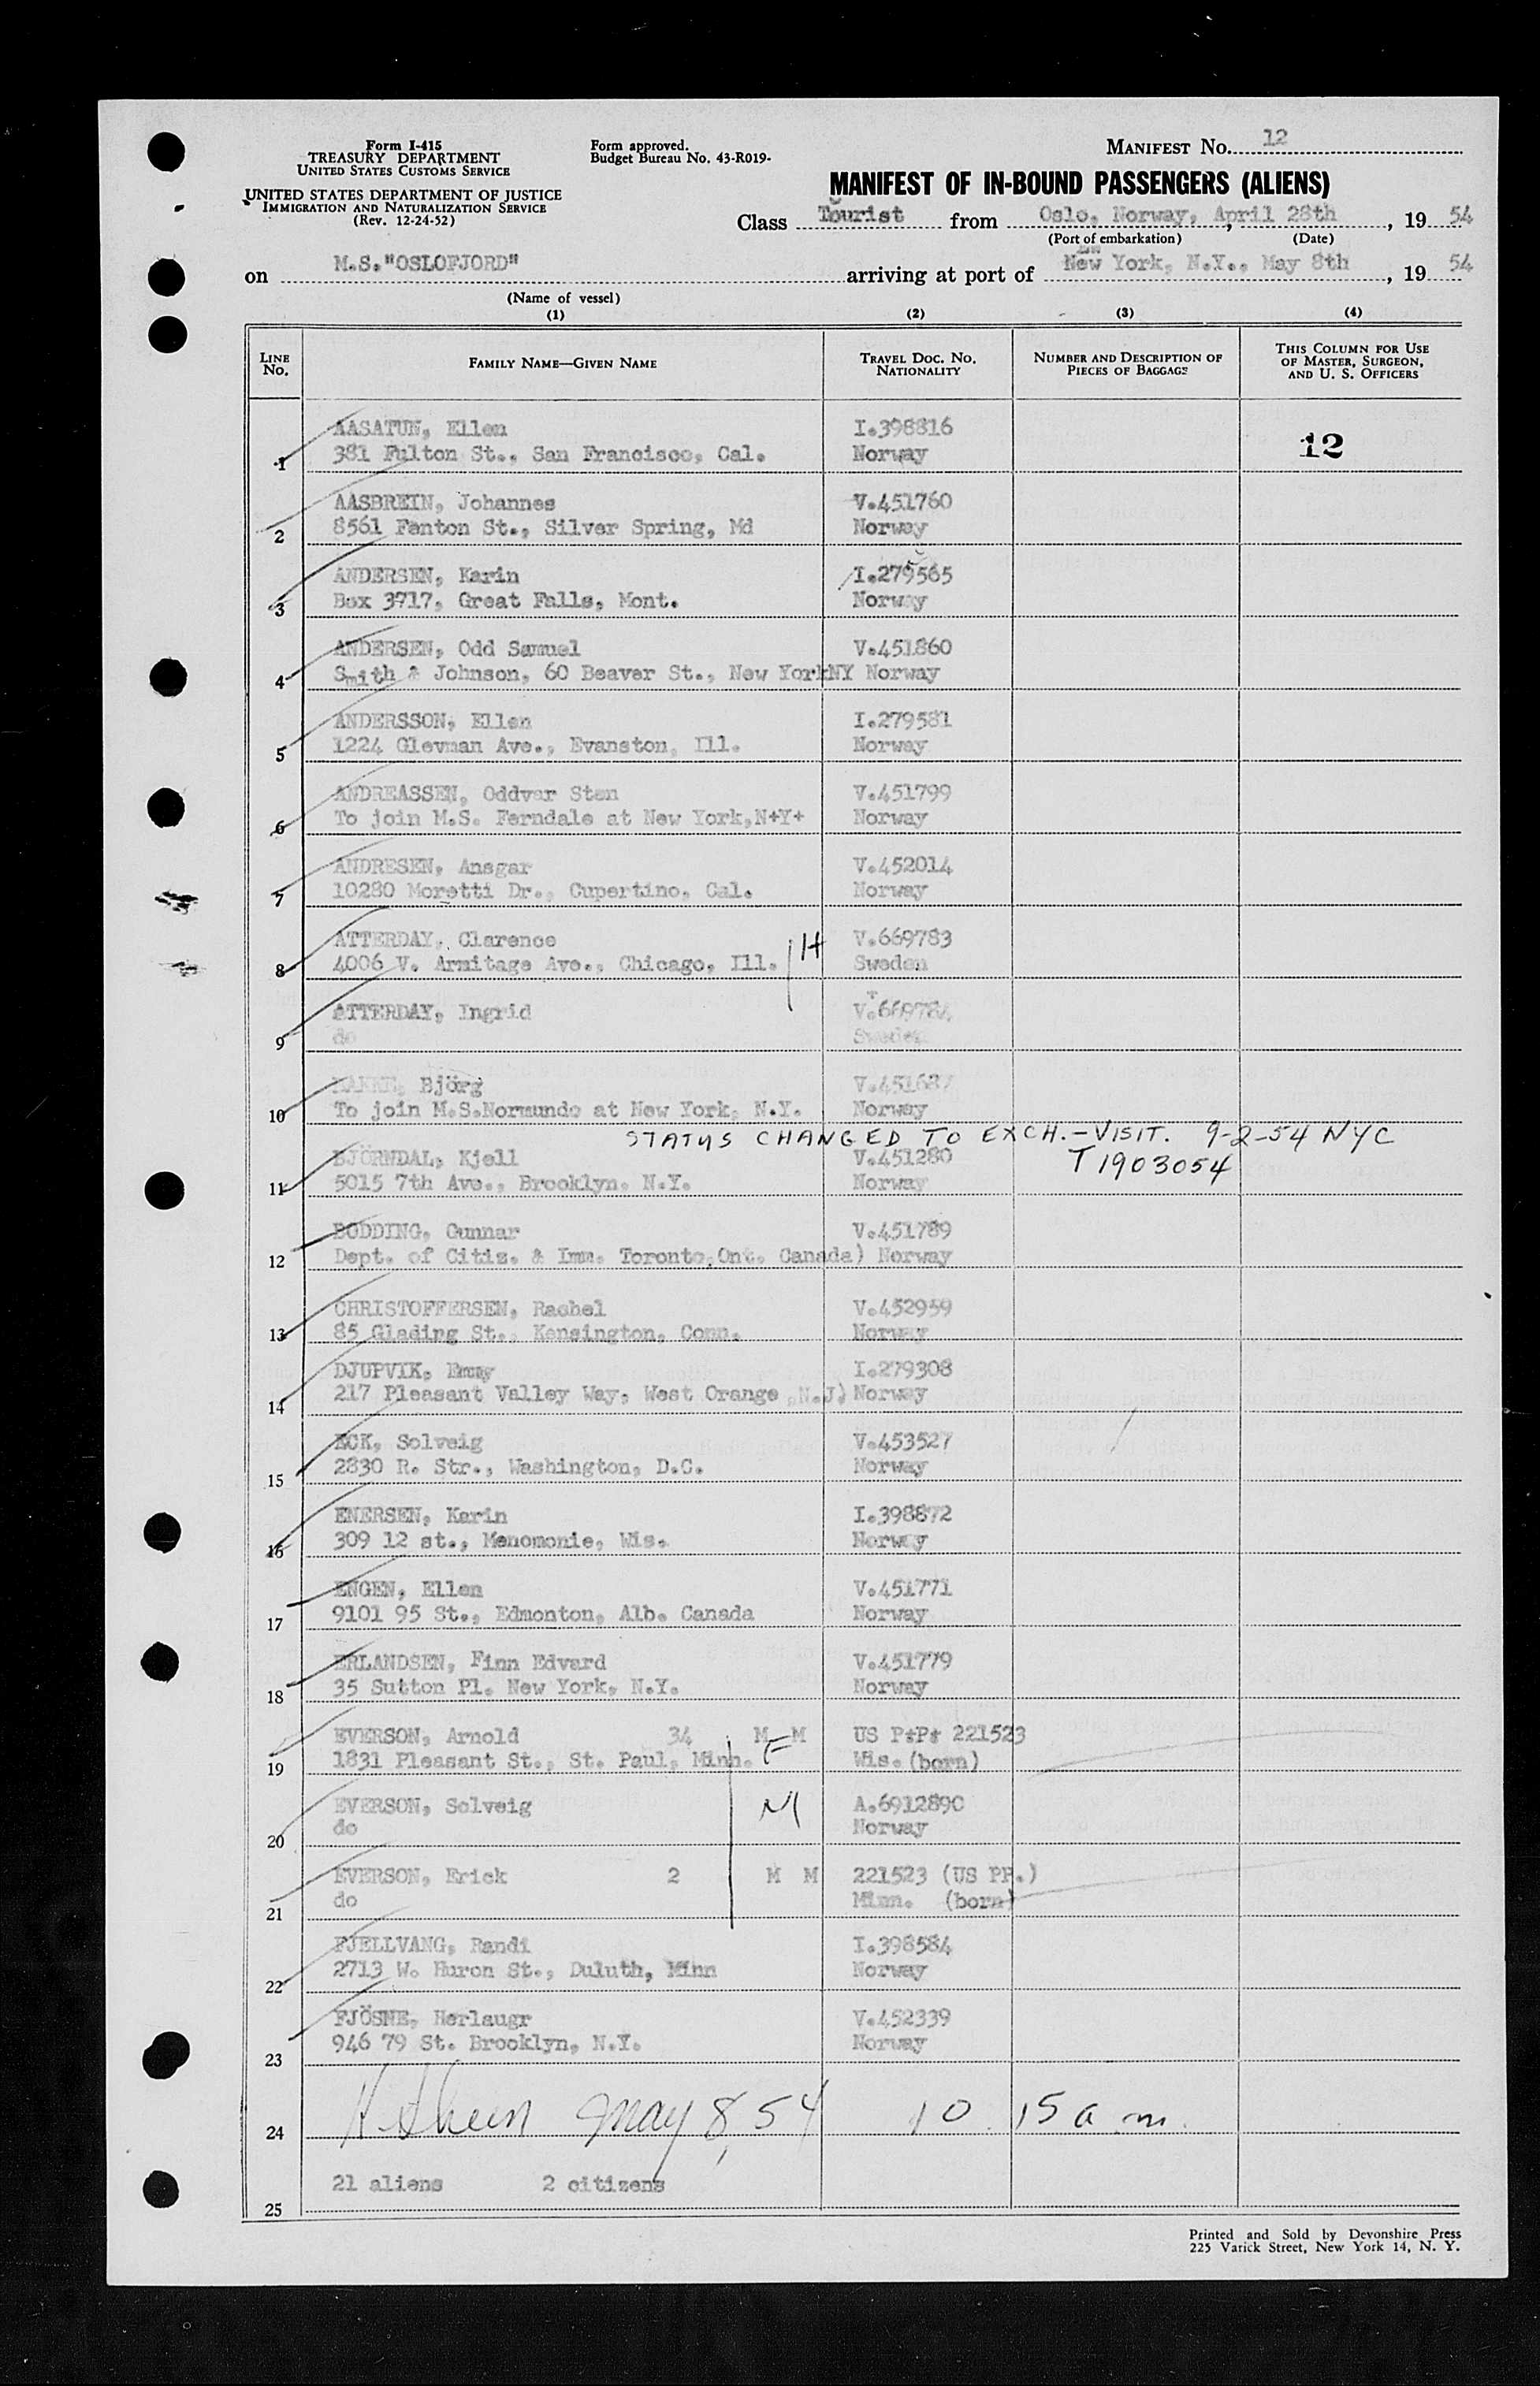 Form I-415
TREASURY DEPARTMENT
UNITED STATES CUSTOMS SERVICE
UNITED STATES DEPARTMENT OF JUSTICE
IMMIGRATION AND NATURALIZATION SERVICE
(Rev. 12-24-52)
Form approved.
Budget Bureau No. 43-R019-
MANIFEST NO. 12
MANIFEST OF IN-BOUND PASSENGERS (ALIENS)
Class Tourist from Oslo, Norway, April 28th, 19 54
(Port of embarkation) (Date)
on M.S."OSLOFJORD" arriving at port of New York, N.Y., May 8th, 19 54
(Name of vessel)
(1) (2) (3) (4)
LINE NO. FAMILY NAME—GIVEN NAME TRAVEL DOC. NO. NATIONALITY NUMBER AND DESCRIPTION OF PIECES OF BAGGAGE THIS COLUMN FOR USE OF MASTER, SURGEON, AND U. S. OFFICERS
AASATUN, Ellen I.398816
1 381 Fulton St., San Francisco, Cal. Norway 12
AASBREIN, Johannes V.451760
2 8561 Fenton St., Silver Spring, Md Norway
ANDERSEN, Karin I.279565
3 Box 3717, Great Falls, Mont. Norway
ANDERSEN, Odd Samuel V.451860
4 Smith & Johnson, 60 Beaver St., New YorkNY Norway
ANDERSSON, Ellen I.279581
5 1224 Glevman Ave., Evanston, Ill. Norway
ANDREASSEN, Oddvar Sten V.451799
6 To join M.S. Ferndale at New York,N+Y+ Norway
ANDRESEN, Ansgar V.452014
7 10280 Moretti Dr., Cupertino, Cal. Norway
ATTERDAY, Clarence H V.669783
8 4006 V. Armitage Ave., Chicago, Ill. Sweden
ATTERDAY, Ingrid V.669784
9 do Sweden
Björg V.451687
10 To join M.S.Normundo at New York, N.Y. Norway
STATUS CHANGED TO EXCH.-VISIT. 9-2-54 NYC
BJÖRNDAL, Kjell V.451280 T1903054
11 5015 7th Ave., Brooklyn. N.Y. Norway
BODDING, Gunnar V.451789
12 Dept. of Citiz. & Imm. Toronto,Ont. Canada) Norway
CHRISTOFFERSEN, Rachel V.452959
13 85 Glading St., Kensington, Conn. Norway
DJUPVIK, Emmy I.279308
14 217 Pleasant Valley Way, West Orange ,N.J) Norway
ECK, Solveig V.453527
15 2830 R. Str., Washington, D.C. Norway
ENERSEN, Karin I.398872
16 309 12 st., Menomonie, Wis. Norway
ENGEN, Ellen V.451771
17 9101 95 St., Edmonton, Alb. Canada Norway
ERLANDSEN, Finn Edvard V.451779
18 35 Sutton Pl. New York, N.Y. Norway
EVERSON, Arnold 34 M M US P+P+ 221523
19 1831 Pleasant St., St. Paul, Minn. F Wis. (born)
EVERSON, Solveig M A.6912890
20 do Norway
EVERSON, Erick 2 M M 221523 (US PP.)
21 do Minn. (born)
FJELLVANG, Randi I.398584
22 2713 W. Huron St., Duluth, Minn Norway
FJÖSNE, Herlaugr V.452339
23 946 79 St. Brooklyn, N.Y. Norway
24 May 8, 54 10 15 a m.
25 21 aliens 2 citizens
Printed and Sold by Devonshire Press
225 Varick Street, New York 14, N. Y.